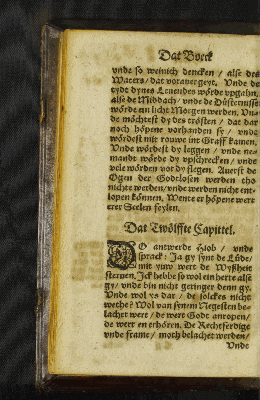 Dat Boeck
vnde so weinich dencken / alse des
Waters / dat vorauer geyt. Vnde de
tydt dynes Leuendes wörde vpgahn,
alse de Middach / vnde de Düsternisse
wörde ein licht Morgen werden. Vn-
de möchtest dy des trösten / dat dar
noch höpene vorhanden sy / vnde
wördest mit rouwe int Graff kamen.
Vnde wördest dy leggen / vnde ne-
mandt wörde dy vpschrecken / vnde
vele wörden vor dy flegen. Auerst de
Ogen der Godtlosen werden tho
nichte werden / vnde werden nicht ent-
lopen können. Wente er höpene wert
erer Seelen feylen.
Dat Twölffte Capittel.
DO antwerde Hiob / vnde
sprack: Ja gy synt de Lüde /
mit yuw wert de Wyßheit
steruen. Ick hebbe so wol ein herte alse
gy / vnde bin nicht geringer denn gy.
Vnde wol ys dar / de solckes nicht
wethe? Wol van synem Negesten be-
lachet wert / de wert Godt anropen /
de wert en erhören. De Rechtferdige
vnde frame / moth belachet werden /
Vnde